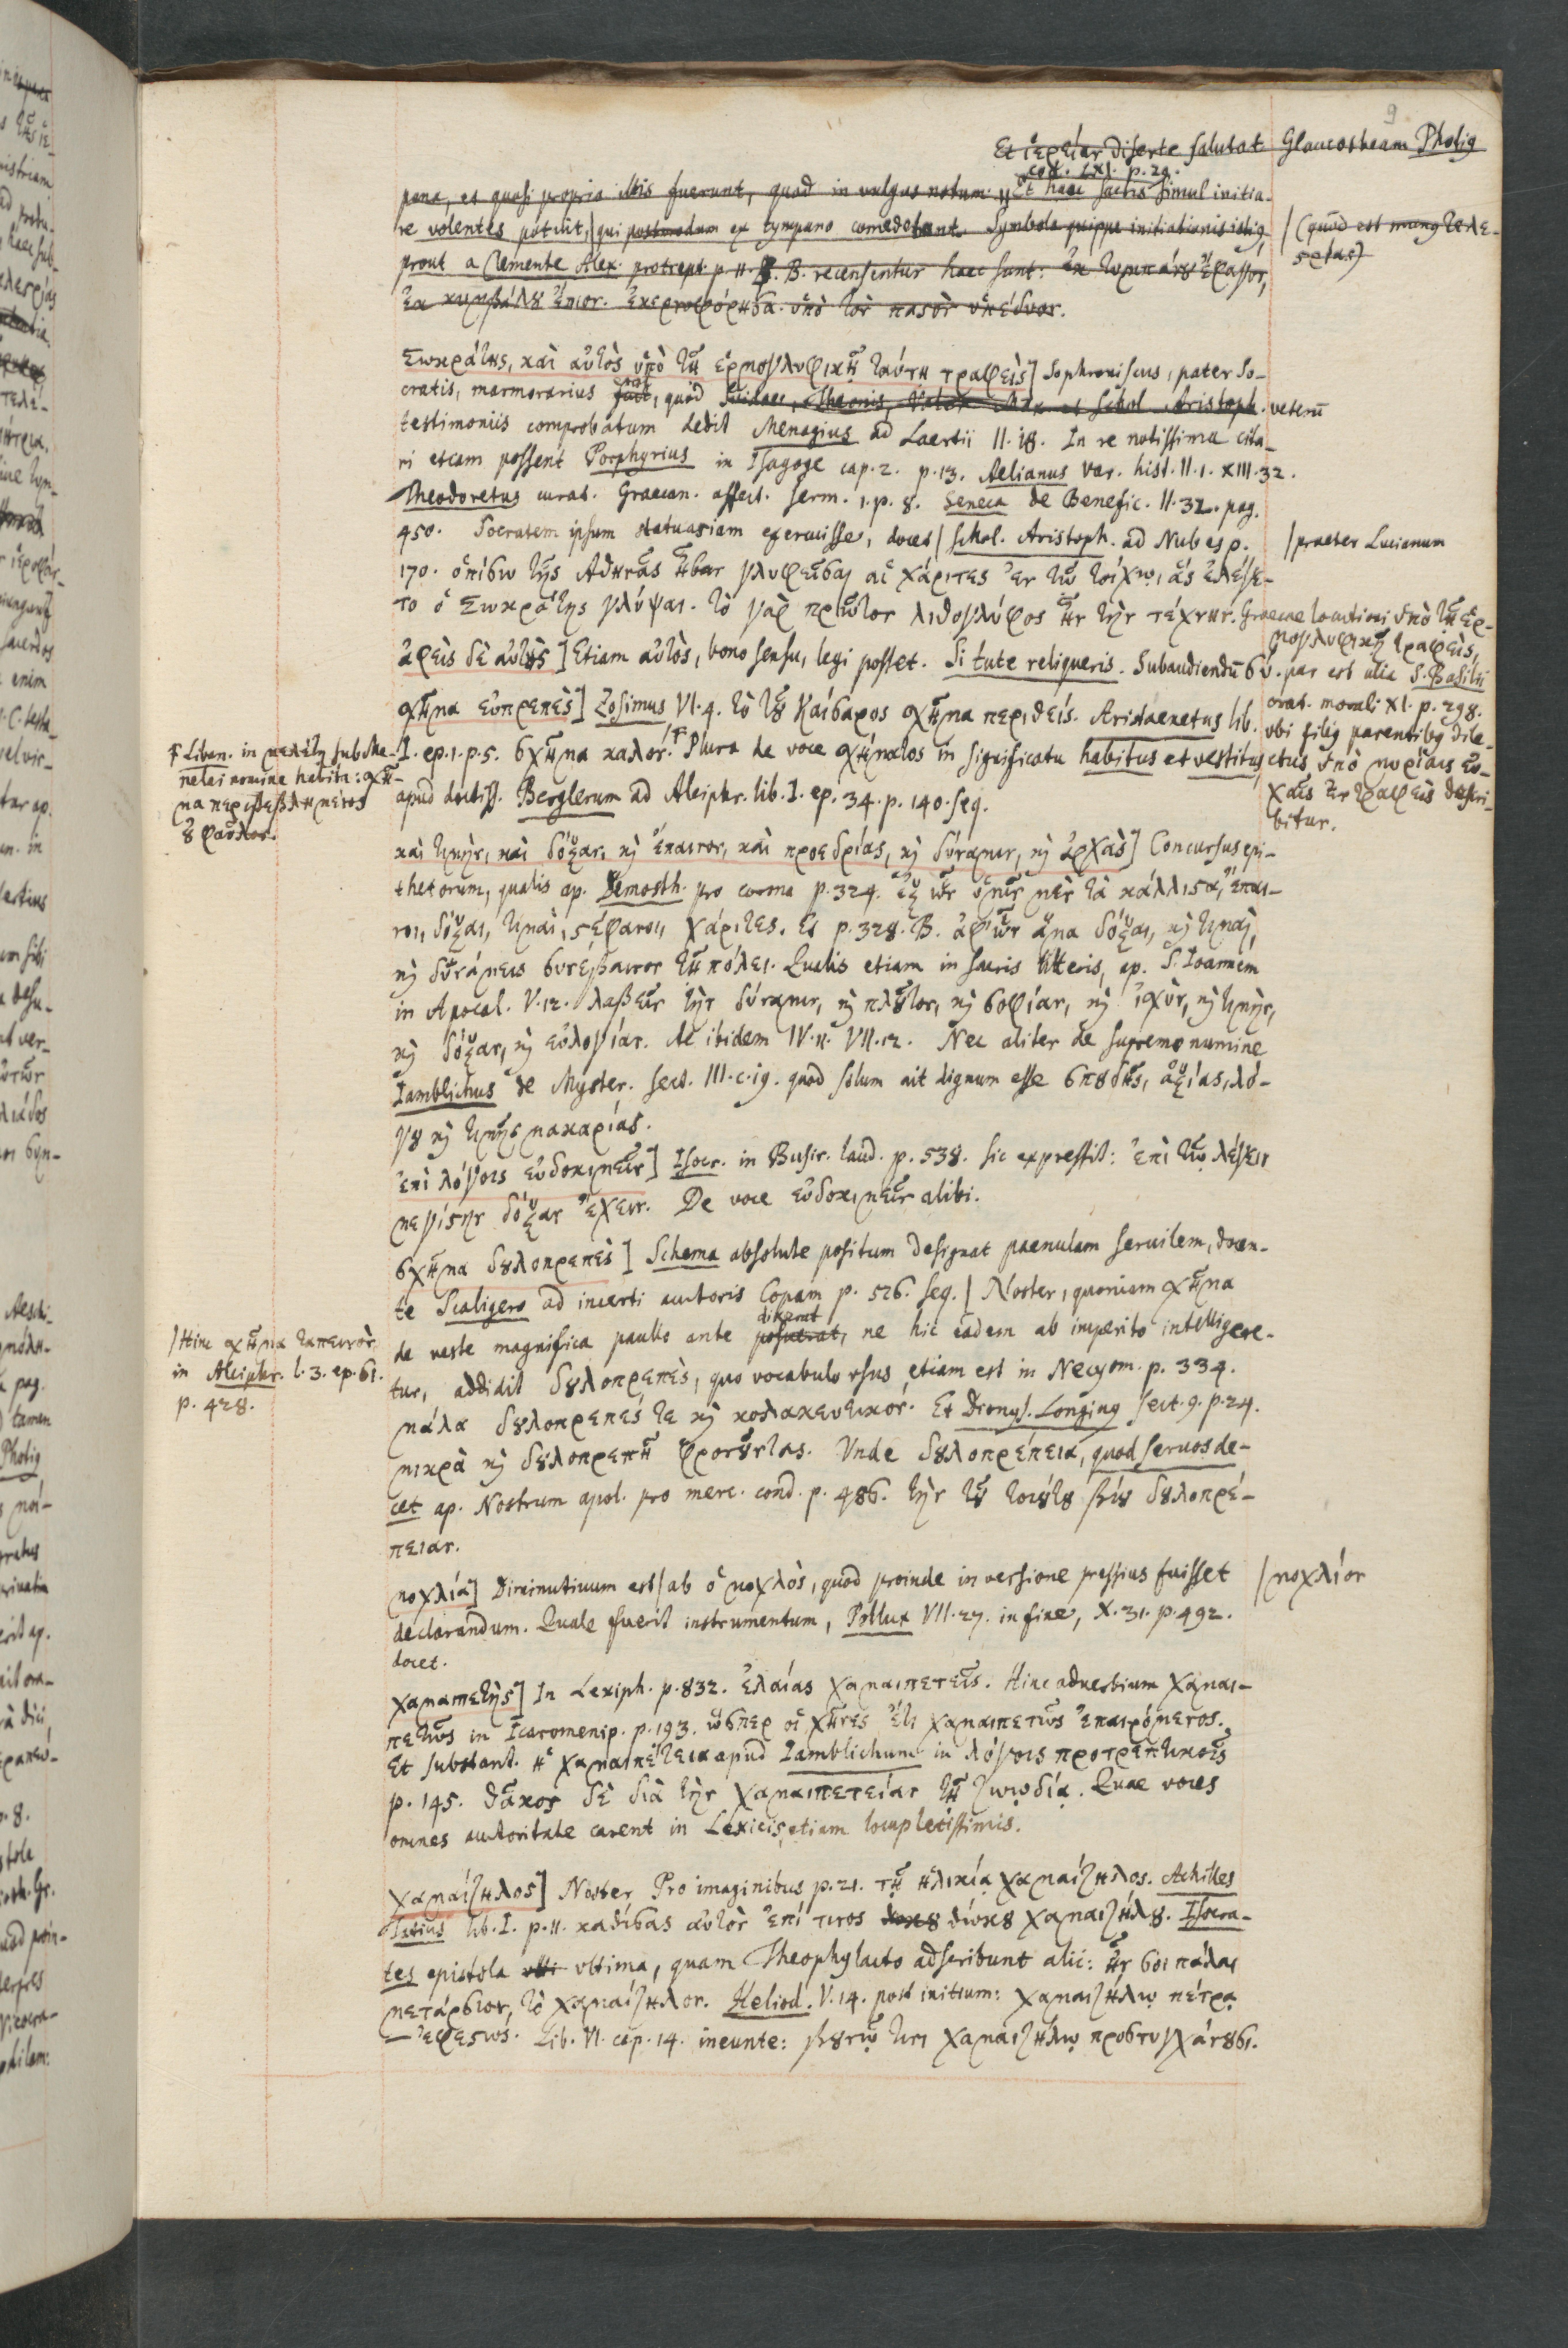 9
Et ἱερείαν diserte salutat Glaucotheam Photig
cod. LXI. p. 29.
pana, et quasi propria illis fuerunt, quod in vulgus notum. Et haec sacris simul initia-
re volentes potuit, qui postmodum ex tympano comedebant. Symbola quippe initiationis istig,
/(quod est mung τελε-
στρίας)
prout a Clemente Alex. protrept. p. 11. B. recensentur haec sunt: ἐκ τυμπάνου ἔφαγον,
ἐκ κυμβάλου ἔπιον. ἐκερνοφόρησα. ὑπὸ τὸν παστὸν ὑπέδυον.
Σωκράτης, καὶ αὐτὸς ὑπὸ τῇ ἑρμογλυφικῇ ταύτῃ τραφεὶς] Sophroniscus, pater So-
cratis, marmorarius fuit, quod Suidae, Theonis, Valer. Max. et Schol. Aristoph. veterū
testimoniis comprobatum dedit Menagius ad Laertii II. 18. In re notissima cita-
ri etiam possent Porphyrius in Isagoge cap. 2. p. 13. Aelianus var. hist. II. 1. XIII. 32.
Theodoretus curat. Graecan. affect. serm. 1. p. 8. Seneca de Benefic. II. 32. pag.
450. Socratem ipsum statuariam exercuisse, docet/ Schol. Aristoph. ad Nubes p.
/praeter Lucianum
170. ὀπίσω τῆς Ἀθηνᾶς ἦσαν γλυφεῖσαι αἱ χάριτες ἐν τῷ τοίχῳ, ἃς ἐλέγε-
το ὁ Σωκράτης γλύψαι. τὸ γὰρ πρῶτον λιθογλύφος ἦν τὴν τέχνην. Graecae locutioni ὑπὸ τῇ ἑρ-
μογλυφικῇ τραφεὶς,
par est alia S. Basilii
orat. morali XI. p. 298.
ubi filig parentibg dile-
ctus ὑπὸ μυρίαις εὐ-
χαῖς ἐντραφεὶς descri-
bitur.
ἀφεὶς δὲ αὐτὸς] Etiam αὐτὸς, bono sensu, legi posset. Si tute reliqueris. Subaudiendū σύ.
σχῆμα εὐπρεπὲς] Zosimus VI. 4. τὸ τοῦ Καίσαρος σχῆμα περιθείς. Aristaenetus lib.
I. ep. 1. p. 5. σχῆμα καλόν.† Plura de voce σχήματος in significatu habitus et vestitus
† Liban. in μελέτῃ sub Me-
nelai nomine habita: σχῆ-
μα περιβεβλημένος
οὐ φαῦλον.
apud doctiss. Berglerum ad Alciphr. lib. I. ep. 34. p. 140. seq.
καὶ τιμὴν, καὶ δόξαν, καὶ ἔπαινον, καὶ προεδρίας, καὶ δύναμιν, καὶ ἀρχὰς] Concursus epi-
thetorum, qualis ap. Demosth. pro corona p. 324. ἐξ ὧν ὑμῖν μὲν τὰ κάλλιστα, ἔπαι-
νοι, δόξαι, τιμαὶ, στέφανοι, χάριτες. Et p. 328. B. ἀφ' ὧν ἅμα δόξαι, καὶ τιμαὶ,
καὶ δυνάμεις συνέβαινον τῇ πόλει. Qualis etiam in sacris litteris, ap. S. Ioannem
in Apocal. V. 12. λαβεῖν τὴν δύναμιν, καὶ πλοῦτον, καὶ σοφίαν, καὶ ἰσχὺν, καὶ τιμὴν,
καὶ δόξαν, καὶ εὐλογίαν. Ac ibidem IV. 11. VII. 12. Nec aliter de supremo numine
Iamblichus de Myster. sect. III. c. 19. quod solum ait dignum esse σπουδῆς, ἀξίας, λό-
γου καὶ τιμῆς μακαρίας.
ἐπὶ λόγοις εὐδοκιμεῖν] Isocr. in Busir. laud. p. 538. sic expressit: ἐπὶ τῷ λέγειν
μεγίστην δόξαν ἔχειν. De voce εὐδοκιμεῖν alibi.
σχῆμα δουλοπρεπὲς] Schema absolute positum designat paenulam servilem, docen-
te Scaligero ad incerti auctoris Copam p. 526. seq./ Noster, quoniam σχῆμα
/Hinc σχῆμα ταπεινὸν
in Alciphr. l. 3. ep. 61.
p. 428.
de veste magnifica paullo ante posuerat, dixerat ne hic eadem ab imperito intelligere-
tur, addidit δουλοπρεπὲς, quo vocabulo usus etiam est in Necyom. p. 334.
μάλα δουλοπρεπές τε καὶ κολακευτικόν. Et Dionys. Longing sect. 9. p. 24.
μικρὰ καὶ δουλοπρεπῆ φρονοῦντας. Unde δουλοπρέπεια, quod servos de-
cet ap. Nostrum apol. pro merc. cond. p. 486. τὴν τοῦ τοιούτου βίου δουλοπρέ-
πειαν.
μοχλία] Diminutivum est/ ab ὁ μοχλὸς, quod proinde in versione pressius fuisset
/μοχλίον
declarandum. Quale fuerit instrumentum, Pollux VII. 27. in fine, X. 31. p. 492.
docet.
χαμαιπετὴς] In Lexiph. p. 832. ἐλαίας χαμαιπετεῖς. Hinc adverbium χαμαι-
πετῶς in Icaromenip. p. 193. ὥσπερ οἱ χῆνες ἔτι χαμαιπετῶς ἐπαιρόμενος.
Et substant. ἡ χαμαιπέτεια apud Iamblichum in λόγοις προτρεπτικοῖς
p. 145. θᾶκος δὲ διὰ τὴν χαμαιπετείαν τῇ ζωωδίᾳ. Quae voces
omnes auctoritate carent in Lexicis, etiam locupletissimis.
χαμαίζηλος] Noster Pro imaginibus p. 21. τῇ ἡλικίᾳ χαμαίζηλος. Achilles
Tatius lib. I. p. 11. καθίσας αὐτὸν ἐπί τινος θώκου χαμαιζήλου. Isocra-
tes epistola ultima, quam Theophylacto adscribunt alii: ἦν σοι πάλαι
μετάρσιον, τὸ χαμαίζηλον. Heliod. V. 14. post initium: χαμαιζήλῳ πέτρᾳ
— ἐφεστὼς. Lib. VI. cap. 14. ineunte: βουνῷ τινι χαμαιζήλῳ προστυγχάνουσι.